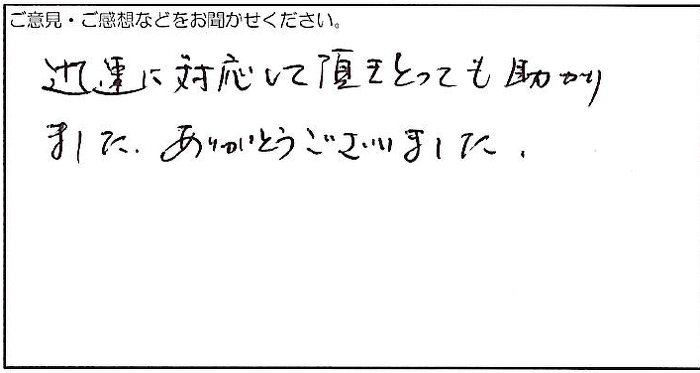 ご意見・ご感想などをお聞かせください。
迅速に対応して頂きとっても助かり
ました。ありがとうございました。